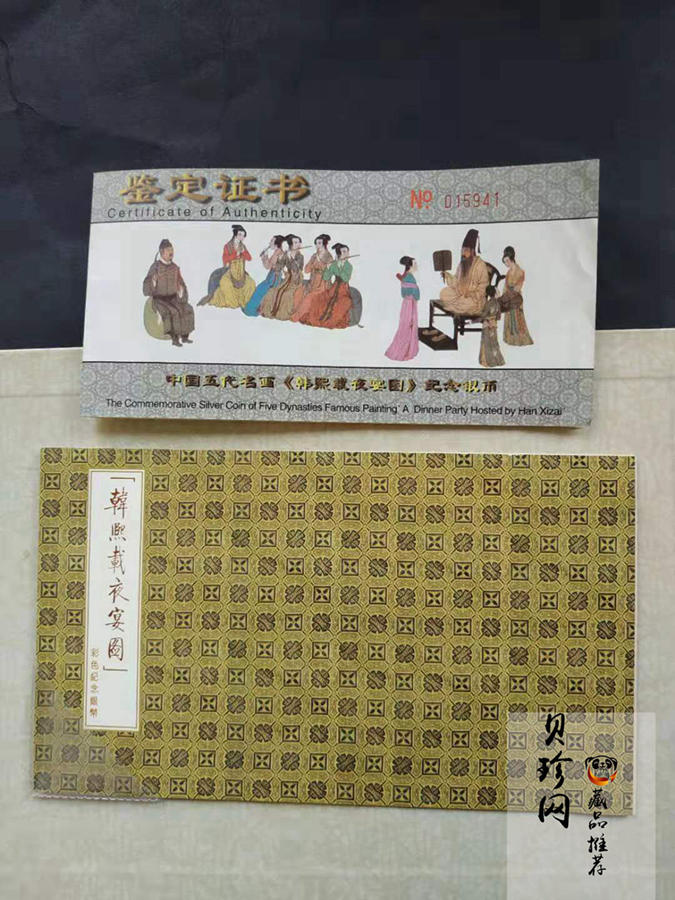 鉴定证书
Certificate of Authenticity
No. 015941
中国五代名画《韩熙载夜宴图》纪念银币
The Commemorative Silver Coin of Five Dynasties Famous Painting' A Dinner Party Hosted by Han Xizai'
「韓熙載夜宴圖」
彩色紀念銀幣
贝珍网
藏品推荐